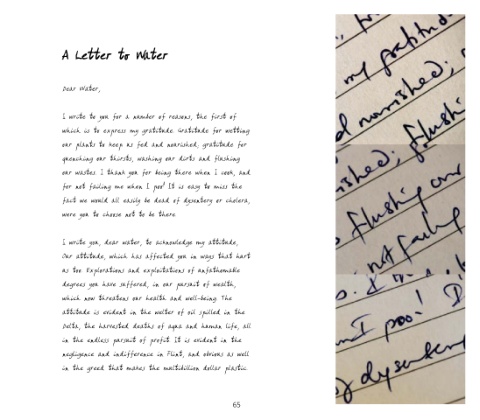 A Letter to Water
Dear Water,
I write to you for a number of reasons, the first of
which is to express my gratitude. Gratitude for wetting
our plants to keep us fed and nourished, gratitude for
quenching our thirsts, washing our dirts and flushing
our wastes. I thank you for being there when I cook, and
for not failing me when I poo! It is easy to miss the
fact we would all easily be dead of dysentery or cholera,
were you to choose not to be there.
I write you, dear water, to acknowledge my attitude,
Our attitude, which has affected you in ways that hurt
us too. Explorations and exploitations of unfathomable
degrees you have suffered, in our pursuit of wealth,
which now threatens our health and well-being. The
attitude is evident in the welter of oil spilled in the
Delta, the harvested deaths of aqua and human life, all
in the endless pursuit of profit. It is evident in the
negligence and indifference in Flint, and obvious as well
in the greed that makes the multibillion dollar plastic
65
my gratitud
d nourished;
flushi
shed;
flushing our
not failing
I poo! I
of dysentery